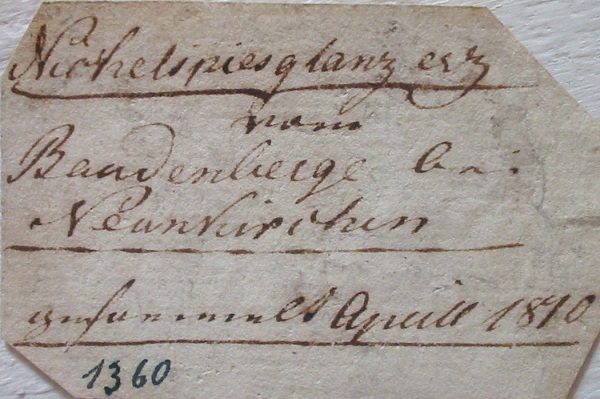 Nickelspiesglanz erz
vom
Baudenberge bei
Neunkirchen
gesammelt Aprill 1810
1360